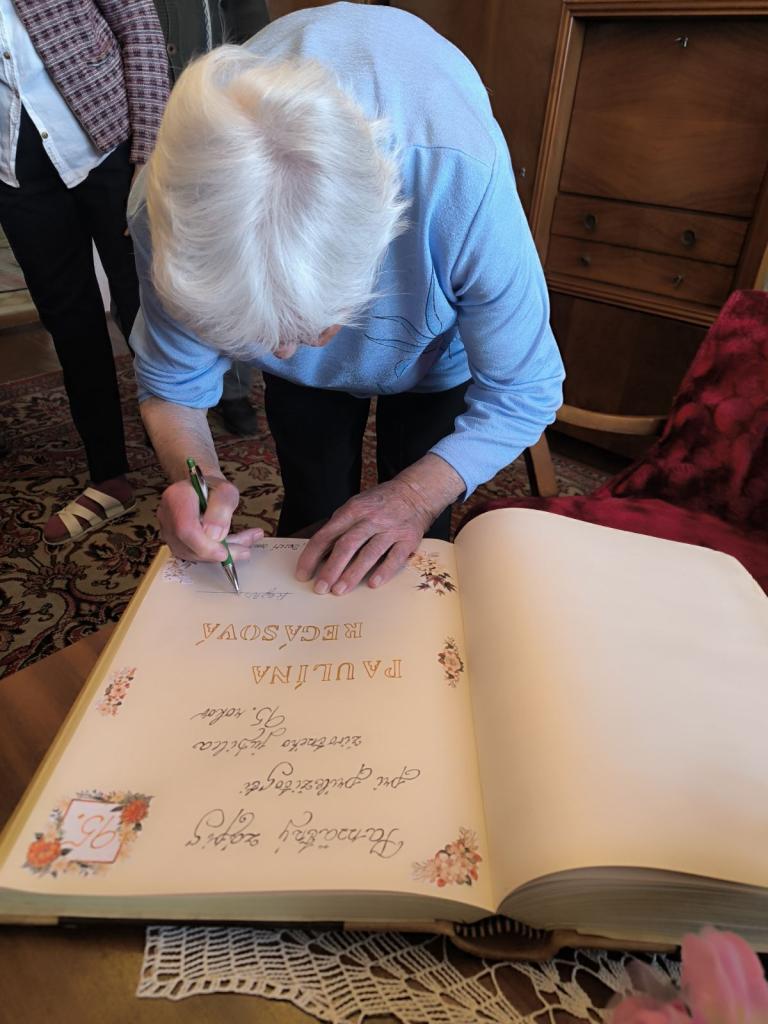 95.
Pamätný zápis
pri príležitosti
životného jubilea
95. rokov
PAULÍNA
REGÁSOVÁ